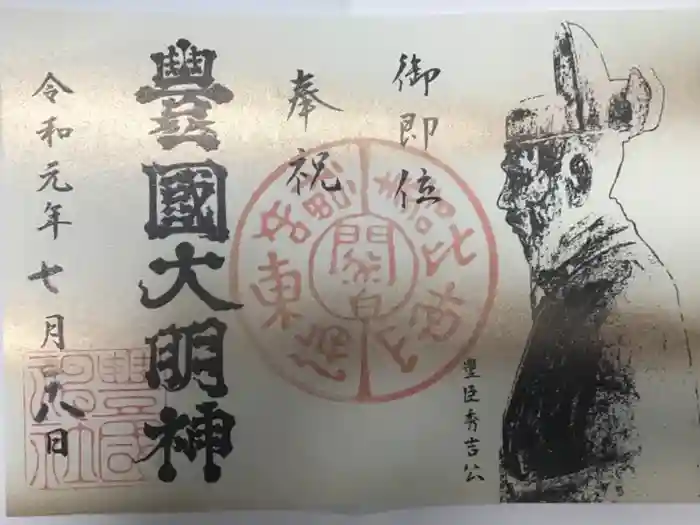 豊臣秀吉公
御即位
奉祝
豐國大明神
令和元年七月八日
關白
豐國神社